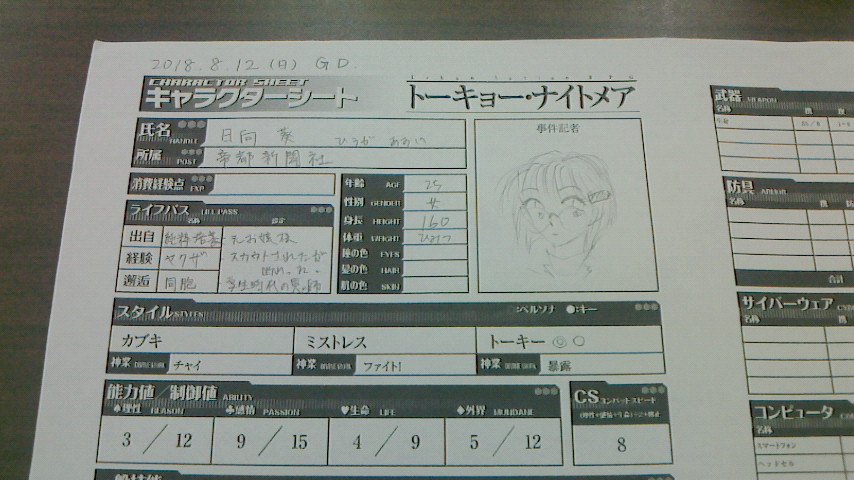 2018.8.12 (日) G D.
CHARACTOR SHEET
キャラクターシート
トーキョー・ナイトメア
氏名 HANDLE 日向 葵 ひうが あおい
所属 POST 帝都新聞社
事件記者
消費経験点 EXP
年齢 AGE 25
性別 GENDER 女
身長 HEIGHT 160
体重 WEIGHT ひみつ
瞳の色 EYES
髪の色 HAIR
肌の色 SKIN
ライフパス LIFE PASS
名称 設定
出自 元お嬢様
経験 ヤクザ スカウトされたが
邂逅 同胞 学生時代の
スタイル STYLES :ペルソナ ●:キー
カブキ ミストレス トーキー ◎ ○
神業 チャイ 神業 ファイト! 神業 暴露
能力値/制御値 ABILITY
♠理性 REASON ♣感情 PASSION ♥生命 LIFE ♦外界 MUNDANE
3 / 12 9 / 15 4 / 9 5 / 12
CS コンバットスピード
8
武器 WEAPON
名称
防具 ARMOR
名称
合計
サイバーウェア
名称
コンピュータ
名称
スマートフォン
ヘッドセル